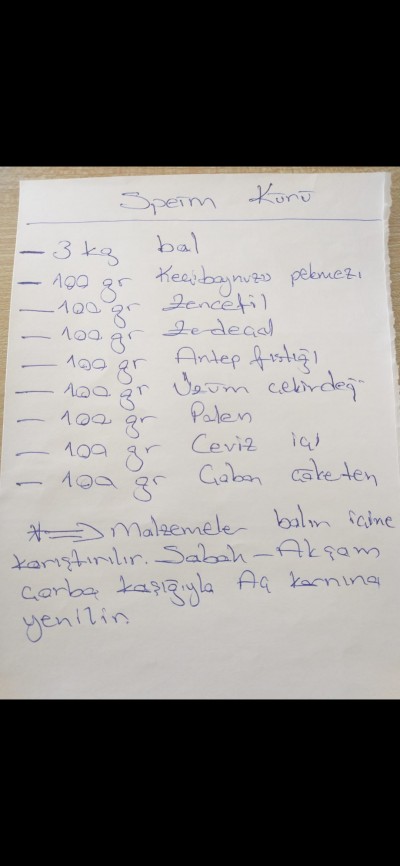 Sperm Kürü
— 3 kg bal
— 100 gr Keçiboynuzu pekmezi
— 100 gr Zencefil
— 100 gr Zerdeçal
— 100 gr Antep fıstığı
— 100 gr Üzüm çekirdeği
— 100 gr Polen
— 100 gr Ceviz içi
— 100 gr Çoban çöketen
*⇒ Malzemeler balın içine
karıştırılır. Sabah – Akşam
çorba kaşığıyla Aç karnına
yenilir.